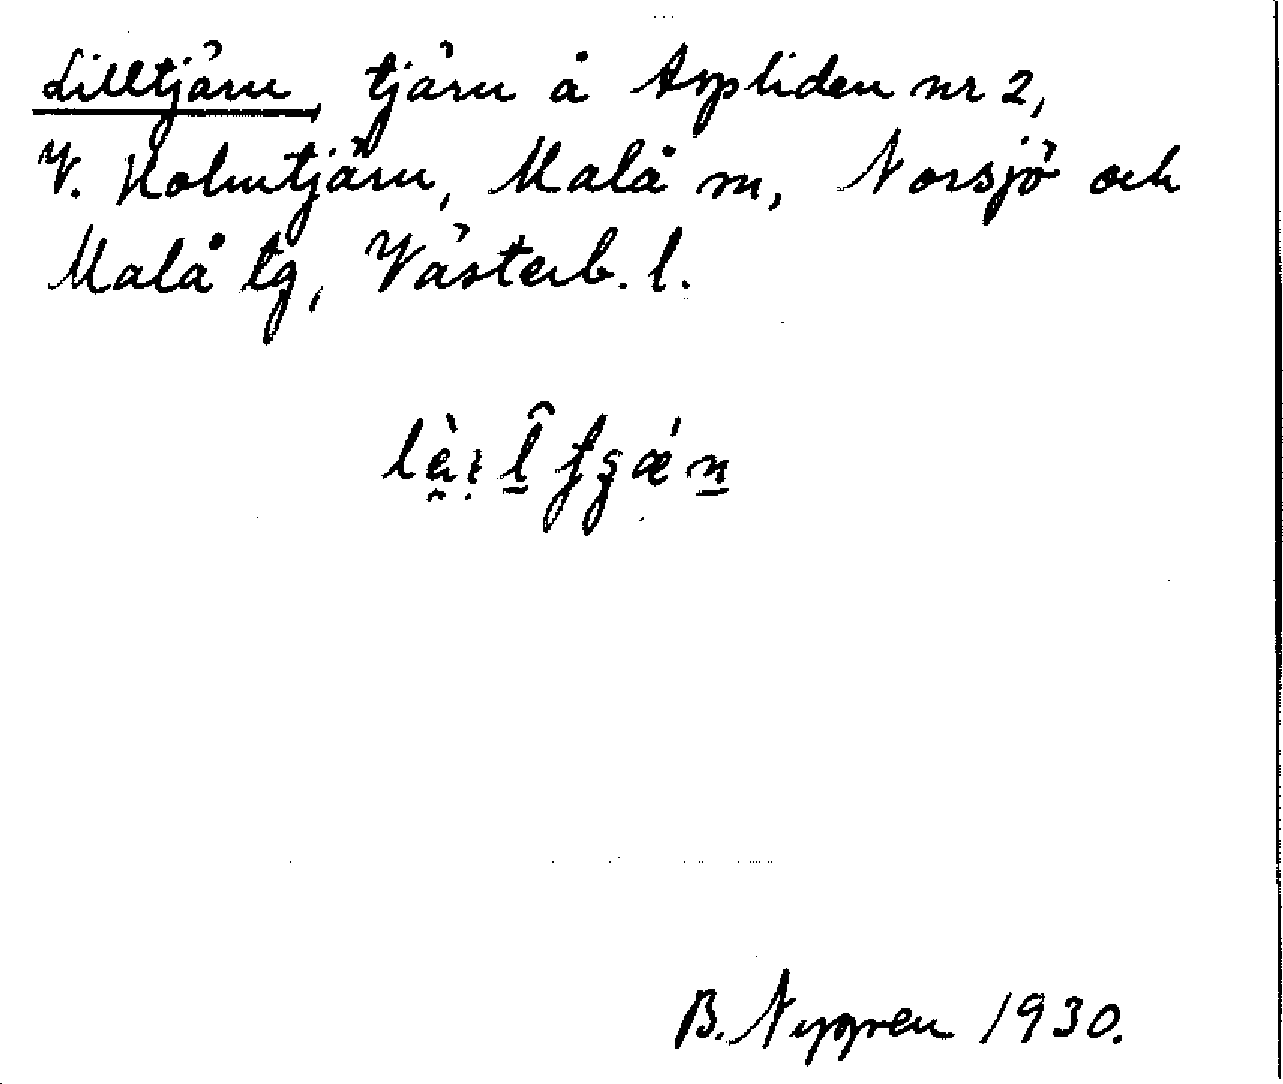 Lilltjärn, tjärn å Aspliden nr 2,
V. Holmtjärn, Malå sn, Norsjö och
Malå tg, Västerb. l.
B. Nygren 1930.